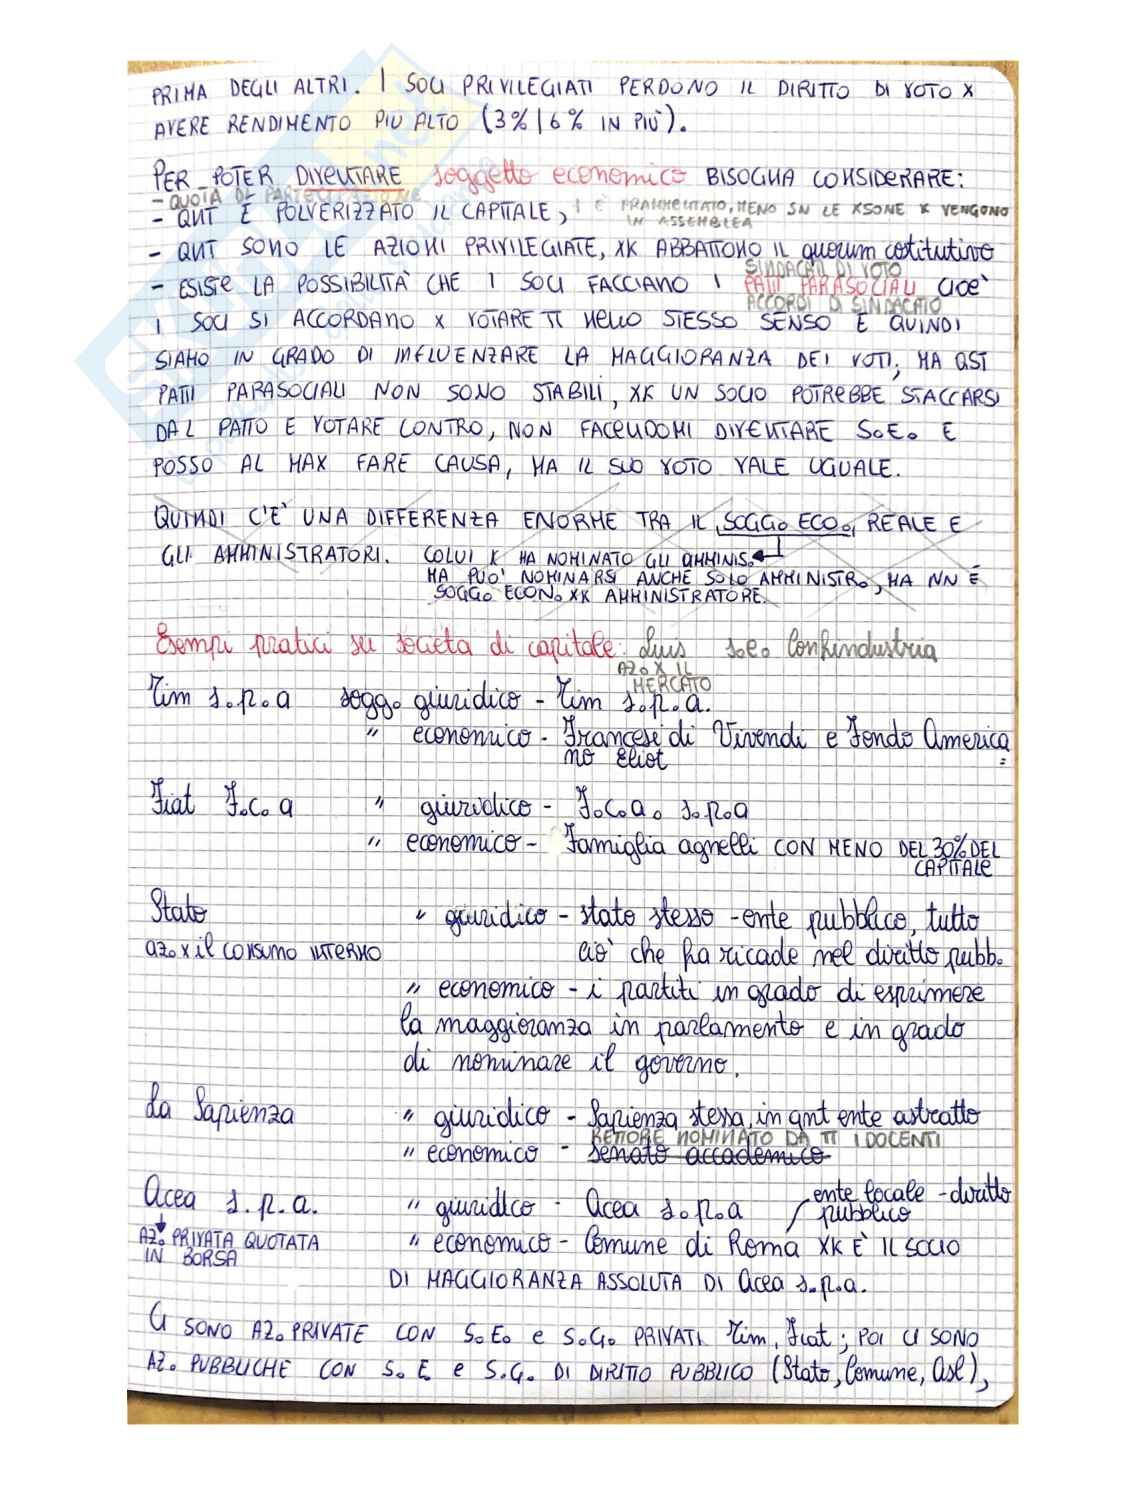 PRIMA DEGLI ALTRI. I SOCI PRIVILEGIATI PERDONO IL DIRITTO DI VOTO X
AVERE RENDIMENTO PIÙ ALTO (3% | 6% IN PIÙ).
PER POTER DIVENTARE soggetto economico BISOGNA CONSIDERARE:
- QUOTA DI PARTECIPAZIONE
- QNT È POLVERIZZATO IL CAPITALE, + È FRAMMENTATO, MENO SN LE XSONE K VENGONO
IN ASSEMBLEA
- QNT SONO LE AZIONI PRIVILEGIATE, XK ABBATTONO IL quorum costitutivo
SINDACATI DI VOTO
- ESISTE LA POSSIBILITÀ CHE I SOCI FACCIANO I PATTI PARASOCIALI CIOÈ
ACCORDI DI SINDACATO
I SOCI SI ACCORDANO X VOTARE TT NELLO STESSO SENSO E QUINDI
SIAMO IN GRADO DI INFLUENZARE LA MAGGIORANZA DEI VOTI, MA QSTI
PATTI PARASOCIALI NON SONO STABILI, XK UN SOCIO POTREBBE STACCARSI
DAL PATTO E VOTARE CONTRO, NON FACENDOMI DIVENTARE S.E. E
POSSO AL MAX FARE CAUSA, MA IL SUO VOTO VALE UGUALE.
QUINDI C'È UNA DIFFERENZA ENORME TRA IL SOGG. ECO. REALE E
GLI AMMINISTRATORI. COLUI K HA NOMINATO GLI AMMINIS.
MA PUÒ NOMINARSI ANCHE SOLO AMMINISTR., MA NN È
SOGG. ECON. XK AMMINISTRATORE.
Esempi pratici su società di capitale: Luis s.e. Confindustria
AZ. X IL
MERCATO
Tim s.p.a sogg. giuridico - Tim s.p.a.
" economico - Francesi di Vivendi e Fondo America
no Eliot
Fiat F.c.a " giuridico - F.c.a. s.p.a
" economico - Famiglia agnelli CON MENO DEL 30% DEL
CAPITALE
Stato " giuridico - stato stesso - ente pubblico, tutto
az. x il consumo interno ciò che fa ricade nel diritto pubb.
" economico - i partiti in grado di esprimere
la maggioranza in parlamento e in grado
di nominare il governo.
La Sapienza " giuridico - Sapienza stessa, in qnt ente astratto
RETTORE NOMINATO DA TT I DOCENTI
" economico - senato accademico
Acea s.p.a. " giuridico - Acea s.p.a ente locale - diritto
pubblico
AZ. PRIVATA QUOTATA " economico - Comune di Roma XK È IL SOCIO
IN BORSA
DI MAGGIORANZA ASSOLUTA DI Acea s.p.a.
CI SONO AZ. PRIVATE CON S.E. e S.G. PRIVATI Tim, Fiat; POI CI SONO
AZ. PUBBLICHE CON S.E. e S.G. DI DIRITTO PUBBLICO (Stato, Comune, Asl),